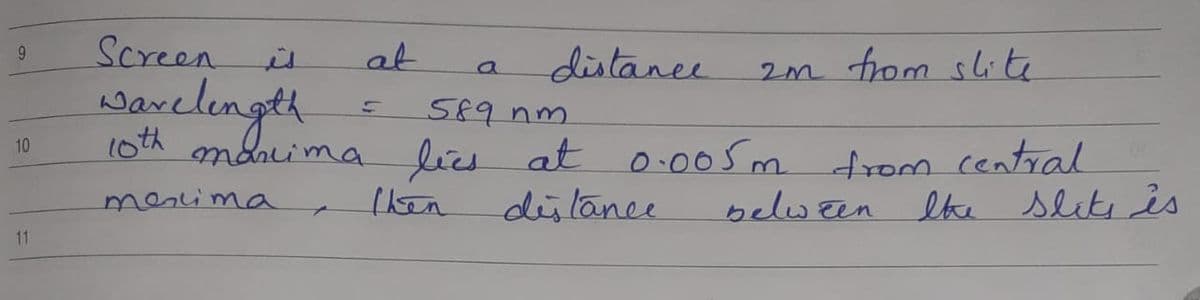 9 Screen is at a distance 2m from slite
wavelength = 589 nm
10 10th maxima lies at 0.005 m from central
maxima, then distance between the slits is
11